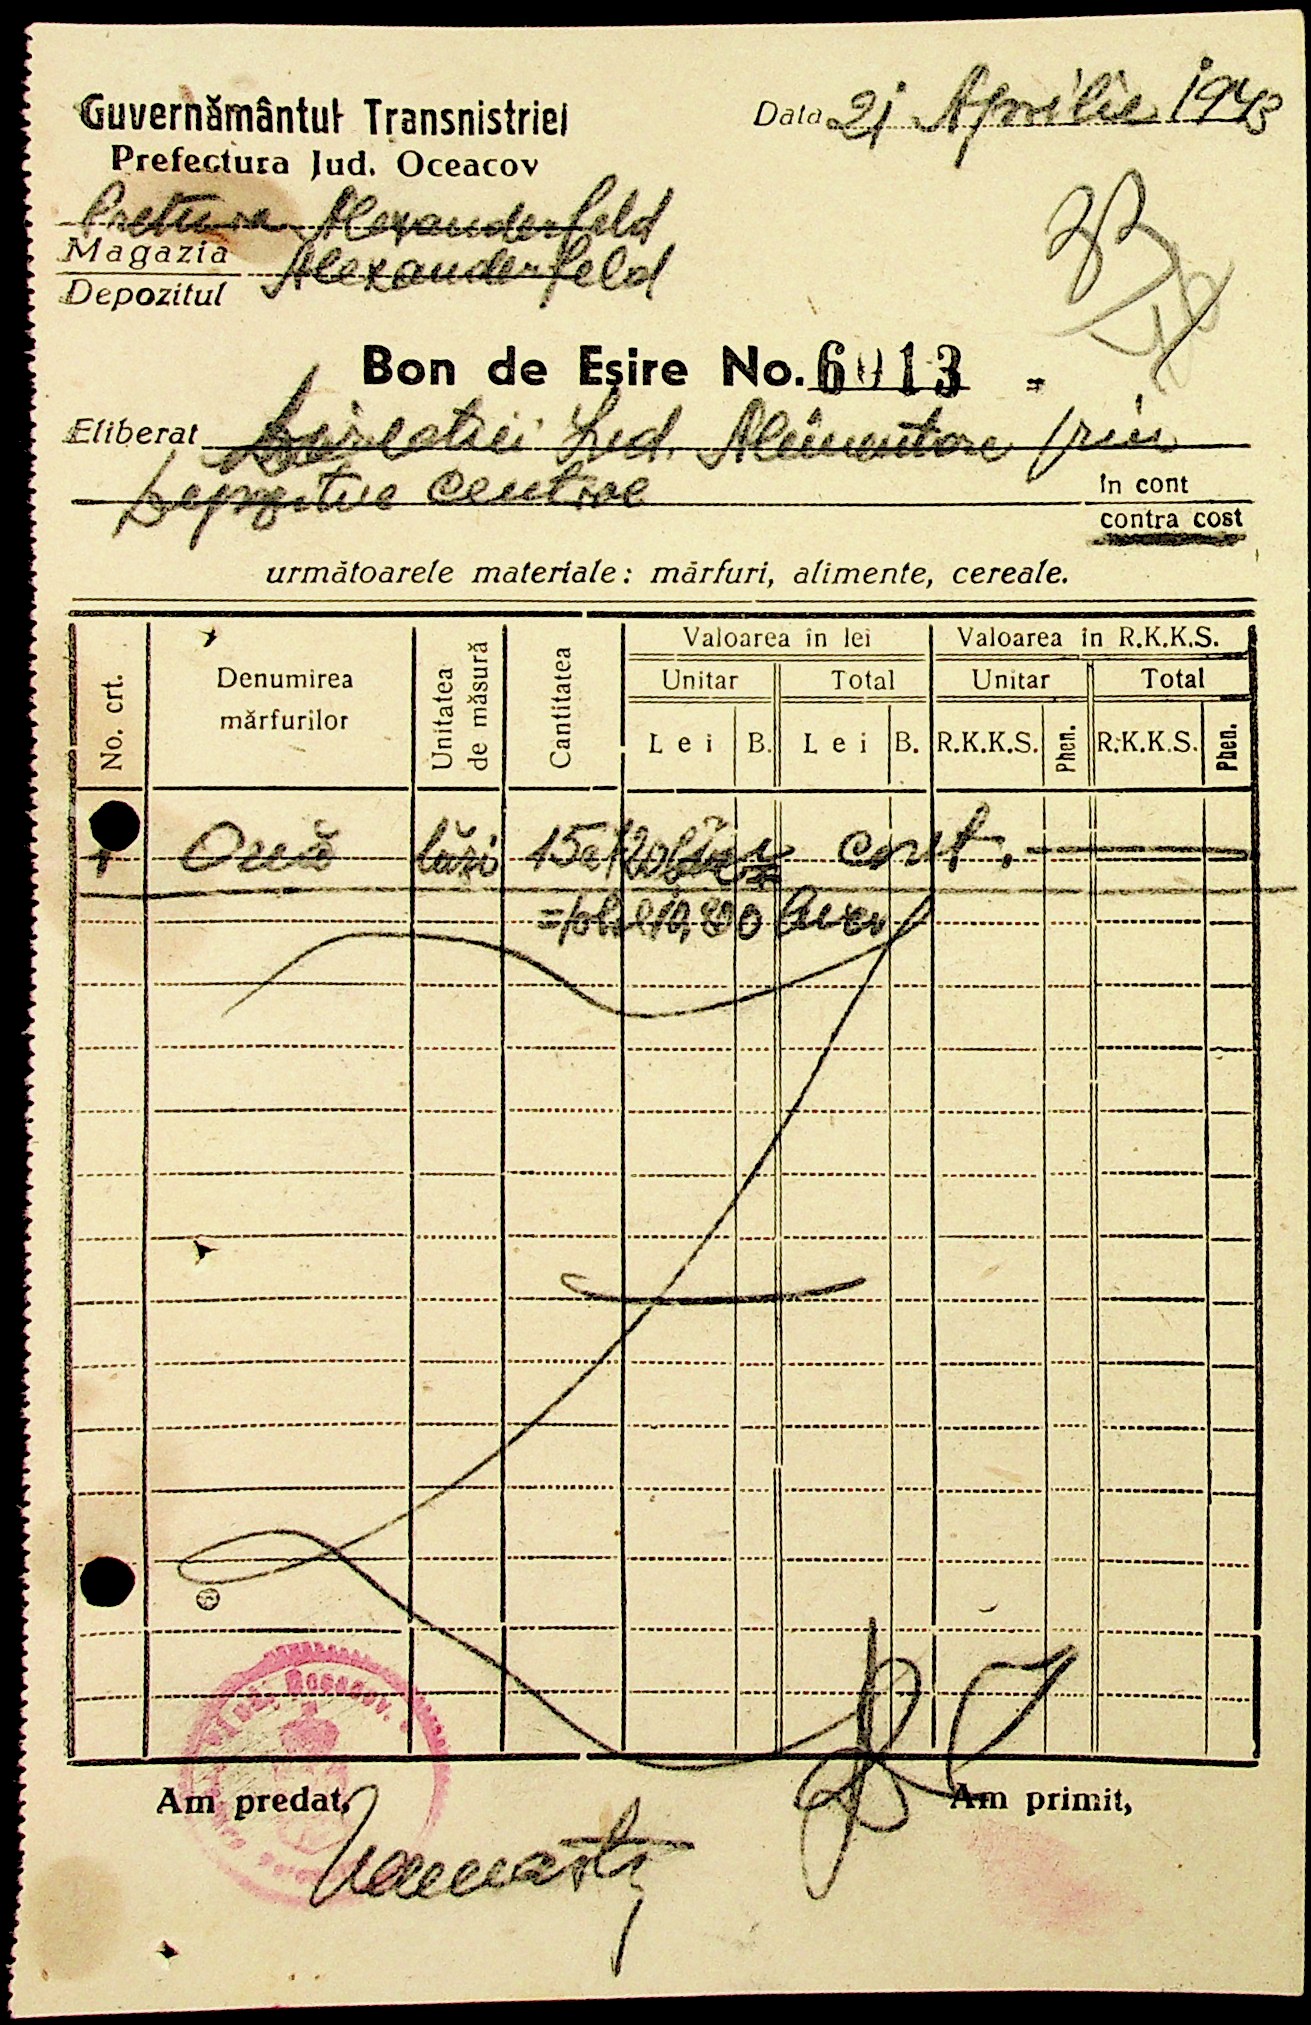 Guvernământul Transnistriei
Data 21 Aprilie 1943
Prefectura Jud. Oceacov
Pretura Alexanderfeld
Magazia
Alexanderfeld
Depozitul
Bon de Eşire No. 6013
Eliberat Direcţiei Ind. Alimentare prin
Depozitul central
în cont
contra cost
următoarele materiale: mărfuri, alimente, cereale.
No. crt.
Denumirea mărfurilor
Unitatea de măsură
Cantitatea
Valoarea în lei
Valoarea în R.K.K.S.
Unitar
Total
Unitar
Total
Lei
B.
Lei
B.
R.K.K.S.
Phen.
R.K.K.S.
Phen.
1 Ouă lăzi 15
Am predat,
Am primit,